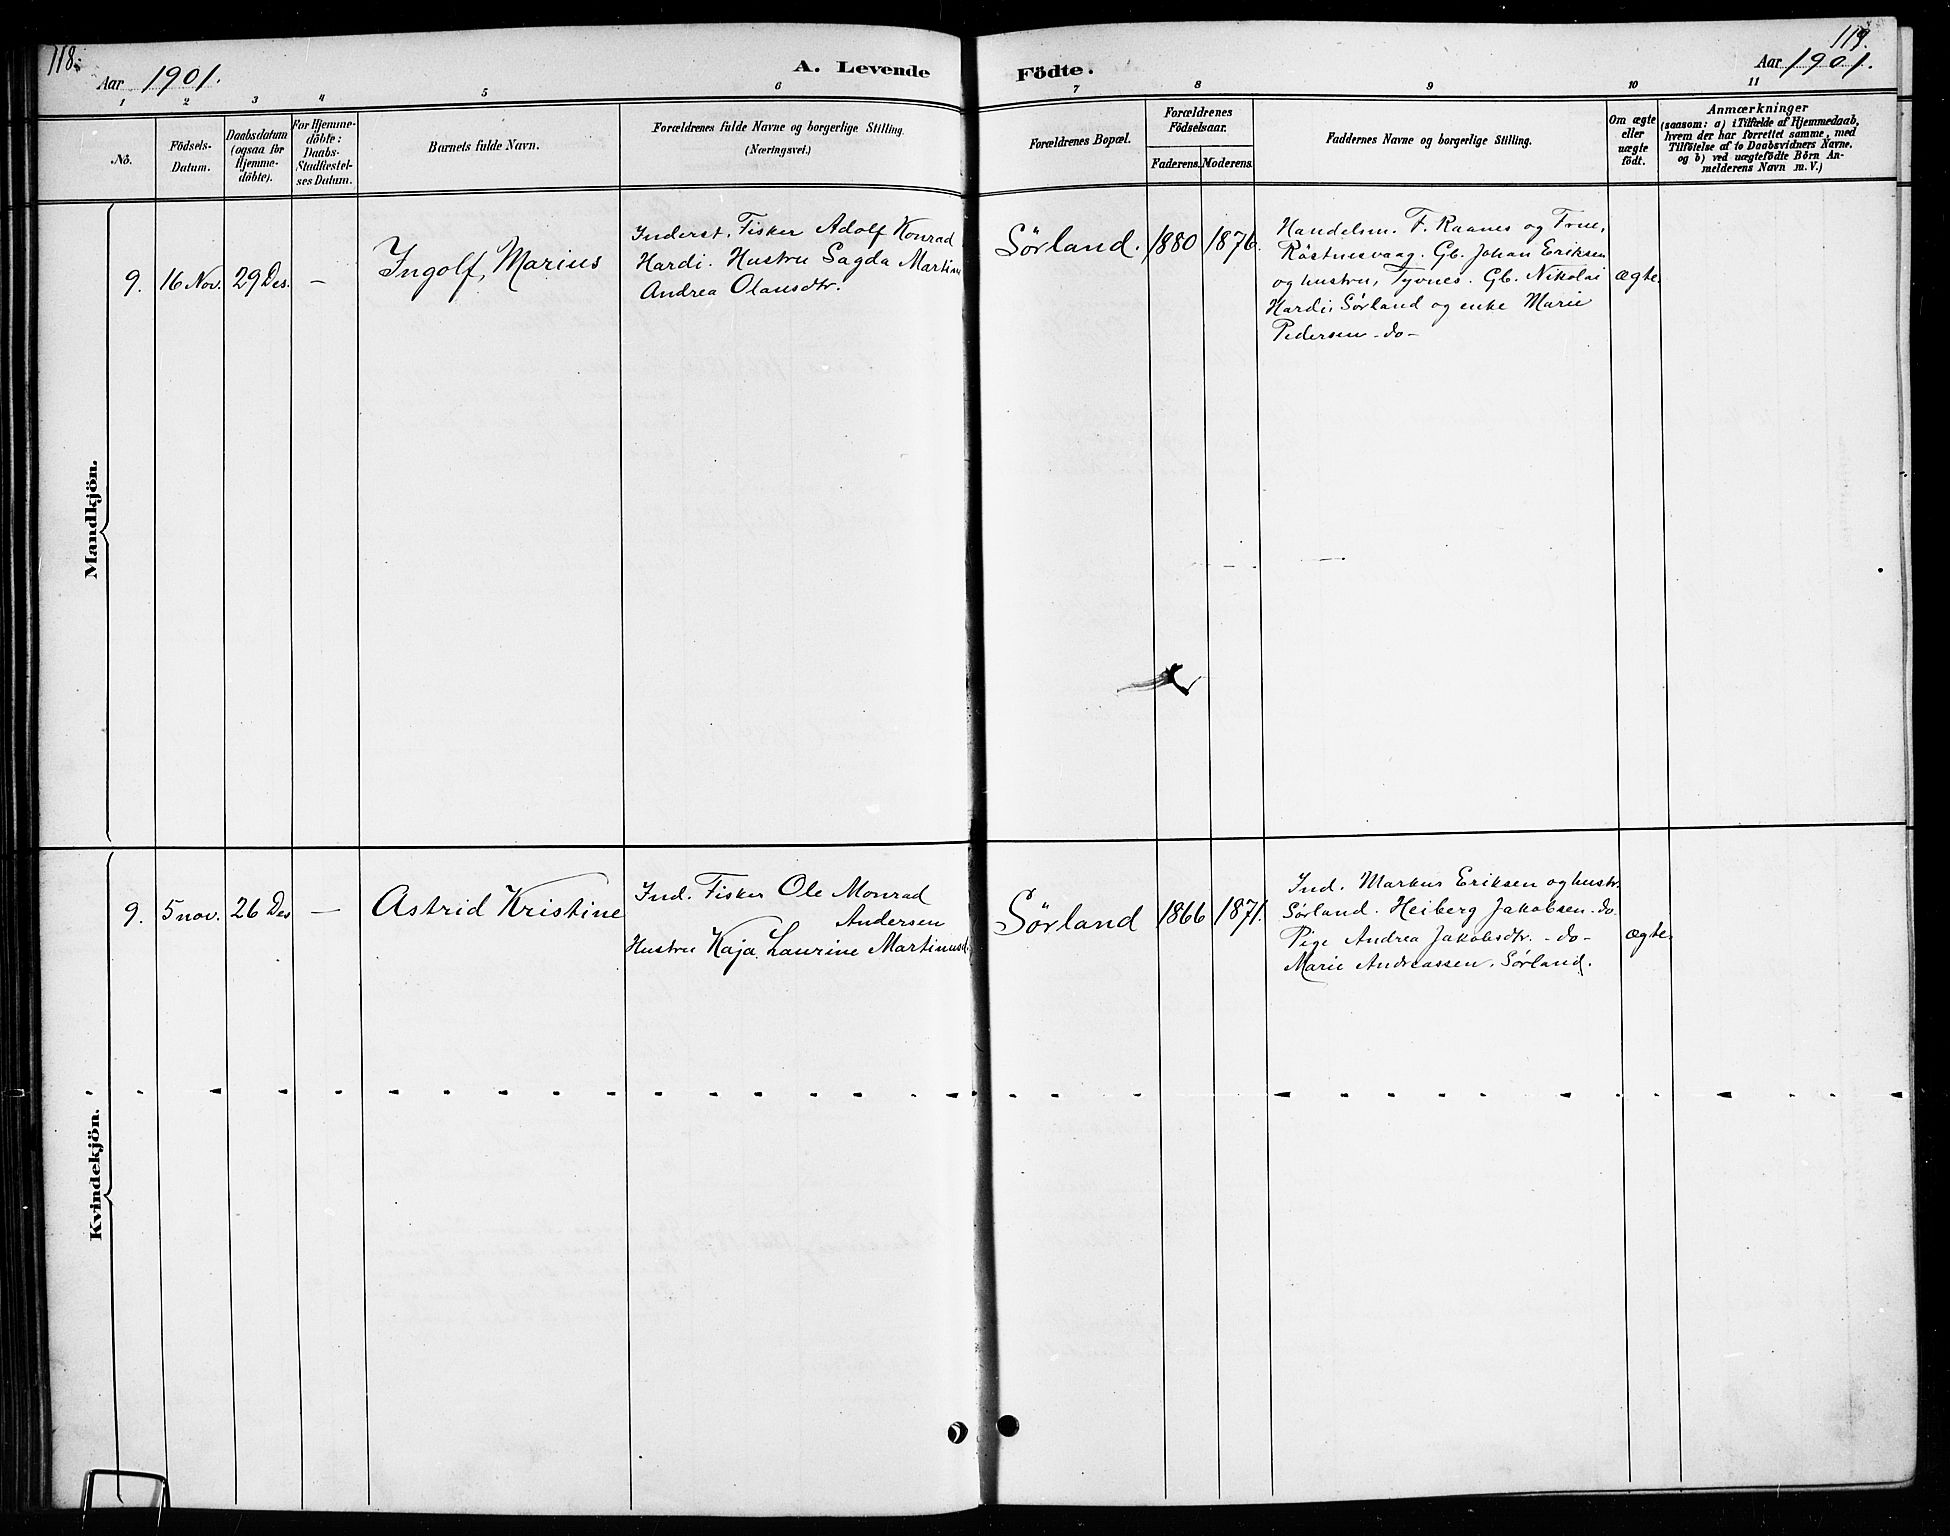 118.
Aar 1901.
A. Levende
Födte.
119.
Aar 1901.
1 2 3 4 5 6 7 8 9 10 11
No.
Födsels-
Datum.
Daabsdatum
(ogsaa for
Hjemme-
döbte).
For Hjemme-
döbte:
Daabs-
Stadfestel-
ses Datum.
Barnets fulde Navn.
Forældrenes fulde Navne og borgerlige Stilling.
(Næringsvei.)
Forældrenes Bopæl.
Forældrenes
Födselsaar.
Faderens. Moderens.
Faddernes Navne og borgerlige Stilling.
Om ægte
eller
uægte
födt.
Anmærkninger
(saasom: a) i Tilfælde af Hjemmedaab,
hvem der har forrettet samme, med
Tilföielse af to Daabsvidners Navne,
og b) ved uægtefödte Börn An-
melderens Navn m. V.)
Mandkjön.
9. 16 Nov. 29 Des. —
Ingolf, Marius
Inderst. Fisker Adolf Konrad
Hardi. Hustru Sagda Martine
Andrea Olausdtr.
Sørland. 1880 1876.
Handelsm. F. Raanes og Frue,
Röstnesvaag. Gb. Johan Eriksen
og hustru, Tyvnes. Gb. Nikolai
Hardi, Sørland og enke Marie
Pedersen -do-
ægte.
Kvindekjön.
9. 5 nov. 26 Des —
Astrid Kristine
Ind. Fisker Ole Monrad
Andersen
Hustru Kaja Laurine Martinusd.
Sørland 1866 1871.
Ind. Markus Eriksen og hustr.
Sørland. Heiberg Jakobsen -do.
Pige Andrea Jakobsdtr. -do-
Marie Andreassen. Sørland.
ægte.